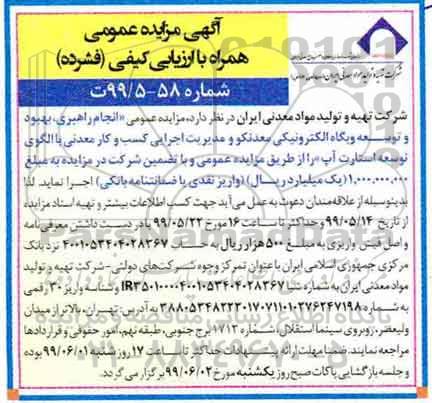 آگهی مزایده عمومی
همراه با ارزیابی کیفی (فشرده)
شماره ۵۸-۹۹/۵ت
شرکت تهیه و تولید مواد معدنی ایران در نظر دارد، مزایده عمومی «انجام راهبری، بهبود
و توسعه وبگاه الکترونیکی معدنکو و مدیریت اجرایی کسب و کار معدنی با الگوی
توسعه استارت آپ» را از طریق مزایده عمومی و با تضمین شرکت در مزایده به مبلغ
۱,۰۰۰,۰۰۰,۰۰۰ (یک میلیارد ریال) (واریز نقدی یا ضمانتنامه بانکی) اجرا نماید. لذا
بدینوسیله از علاقه‌مندان دعوت به عمل می‌آید جهت کسب اطلاعات بیشتر و تهیه اسناد مزایده
از تاریخ ۹۹/۰۵/۱۴ و حداکثر تا ساعت ۱۶ مورخ ۹۹/۰۵/۲۲ با در دست داشتن معرفی نامه
و اصل فیش واریزی به مبلغ ۵۰۰ هزار ریال به حساب ۴۰۰۱۰۵۳۴۰۴۰۲۸۳۶۷ نزد بانک
مرکزی جمهوری اسلامی ایران با عنوان تمرکز وجوه شرکت‌های دولتی-شرکت تهیه و تولید
مواد معدنی ایران به شماره شبا IR۳۵۰۱۰۰۰۰۴۰۰۱۰۵۳۴۰۴۰۲۸۳۶۷ و شناسه واریز ۳۰ رقمی
به شماره ۳۸۸۰۵۳۴۸۲۲۳۰۱۷۰۷۱۱۰۱۰۳۷۶۲۴۷۱۹۸ به آدرس: تهران، بالاتر از میدان
ولیعصر، روبروی سینما استقلال، شماره ۱۷۱۳ برج جنوبی، طبقه نهم، امور حقوقی و قراردادها
مراجعه نمایند. ضمنا مهلت ارائه پیشنهادات حداکثر تا ساعت ۱۷ روز شنبه ۹۹/۰۶/۰۱ بوده
و جلسه بازگشایی پاکات صبح روز یکشنبه مورخ ۹۹/۰۶/۰۲ برگزار می گردد.